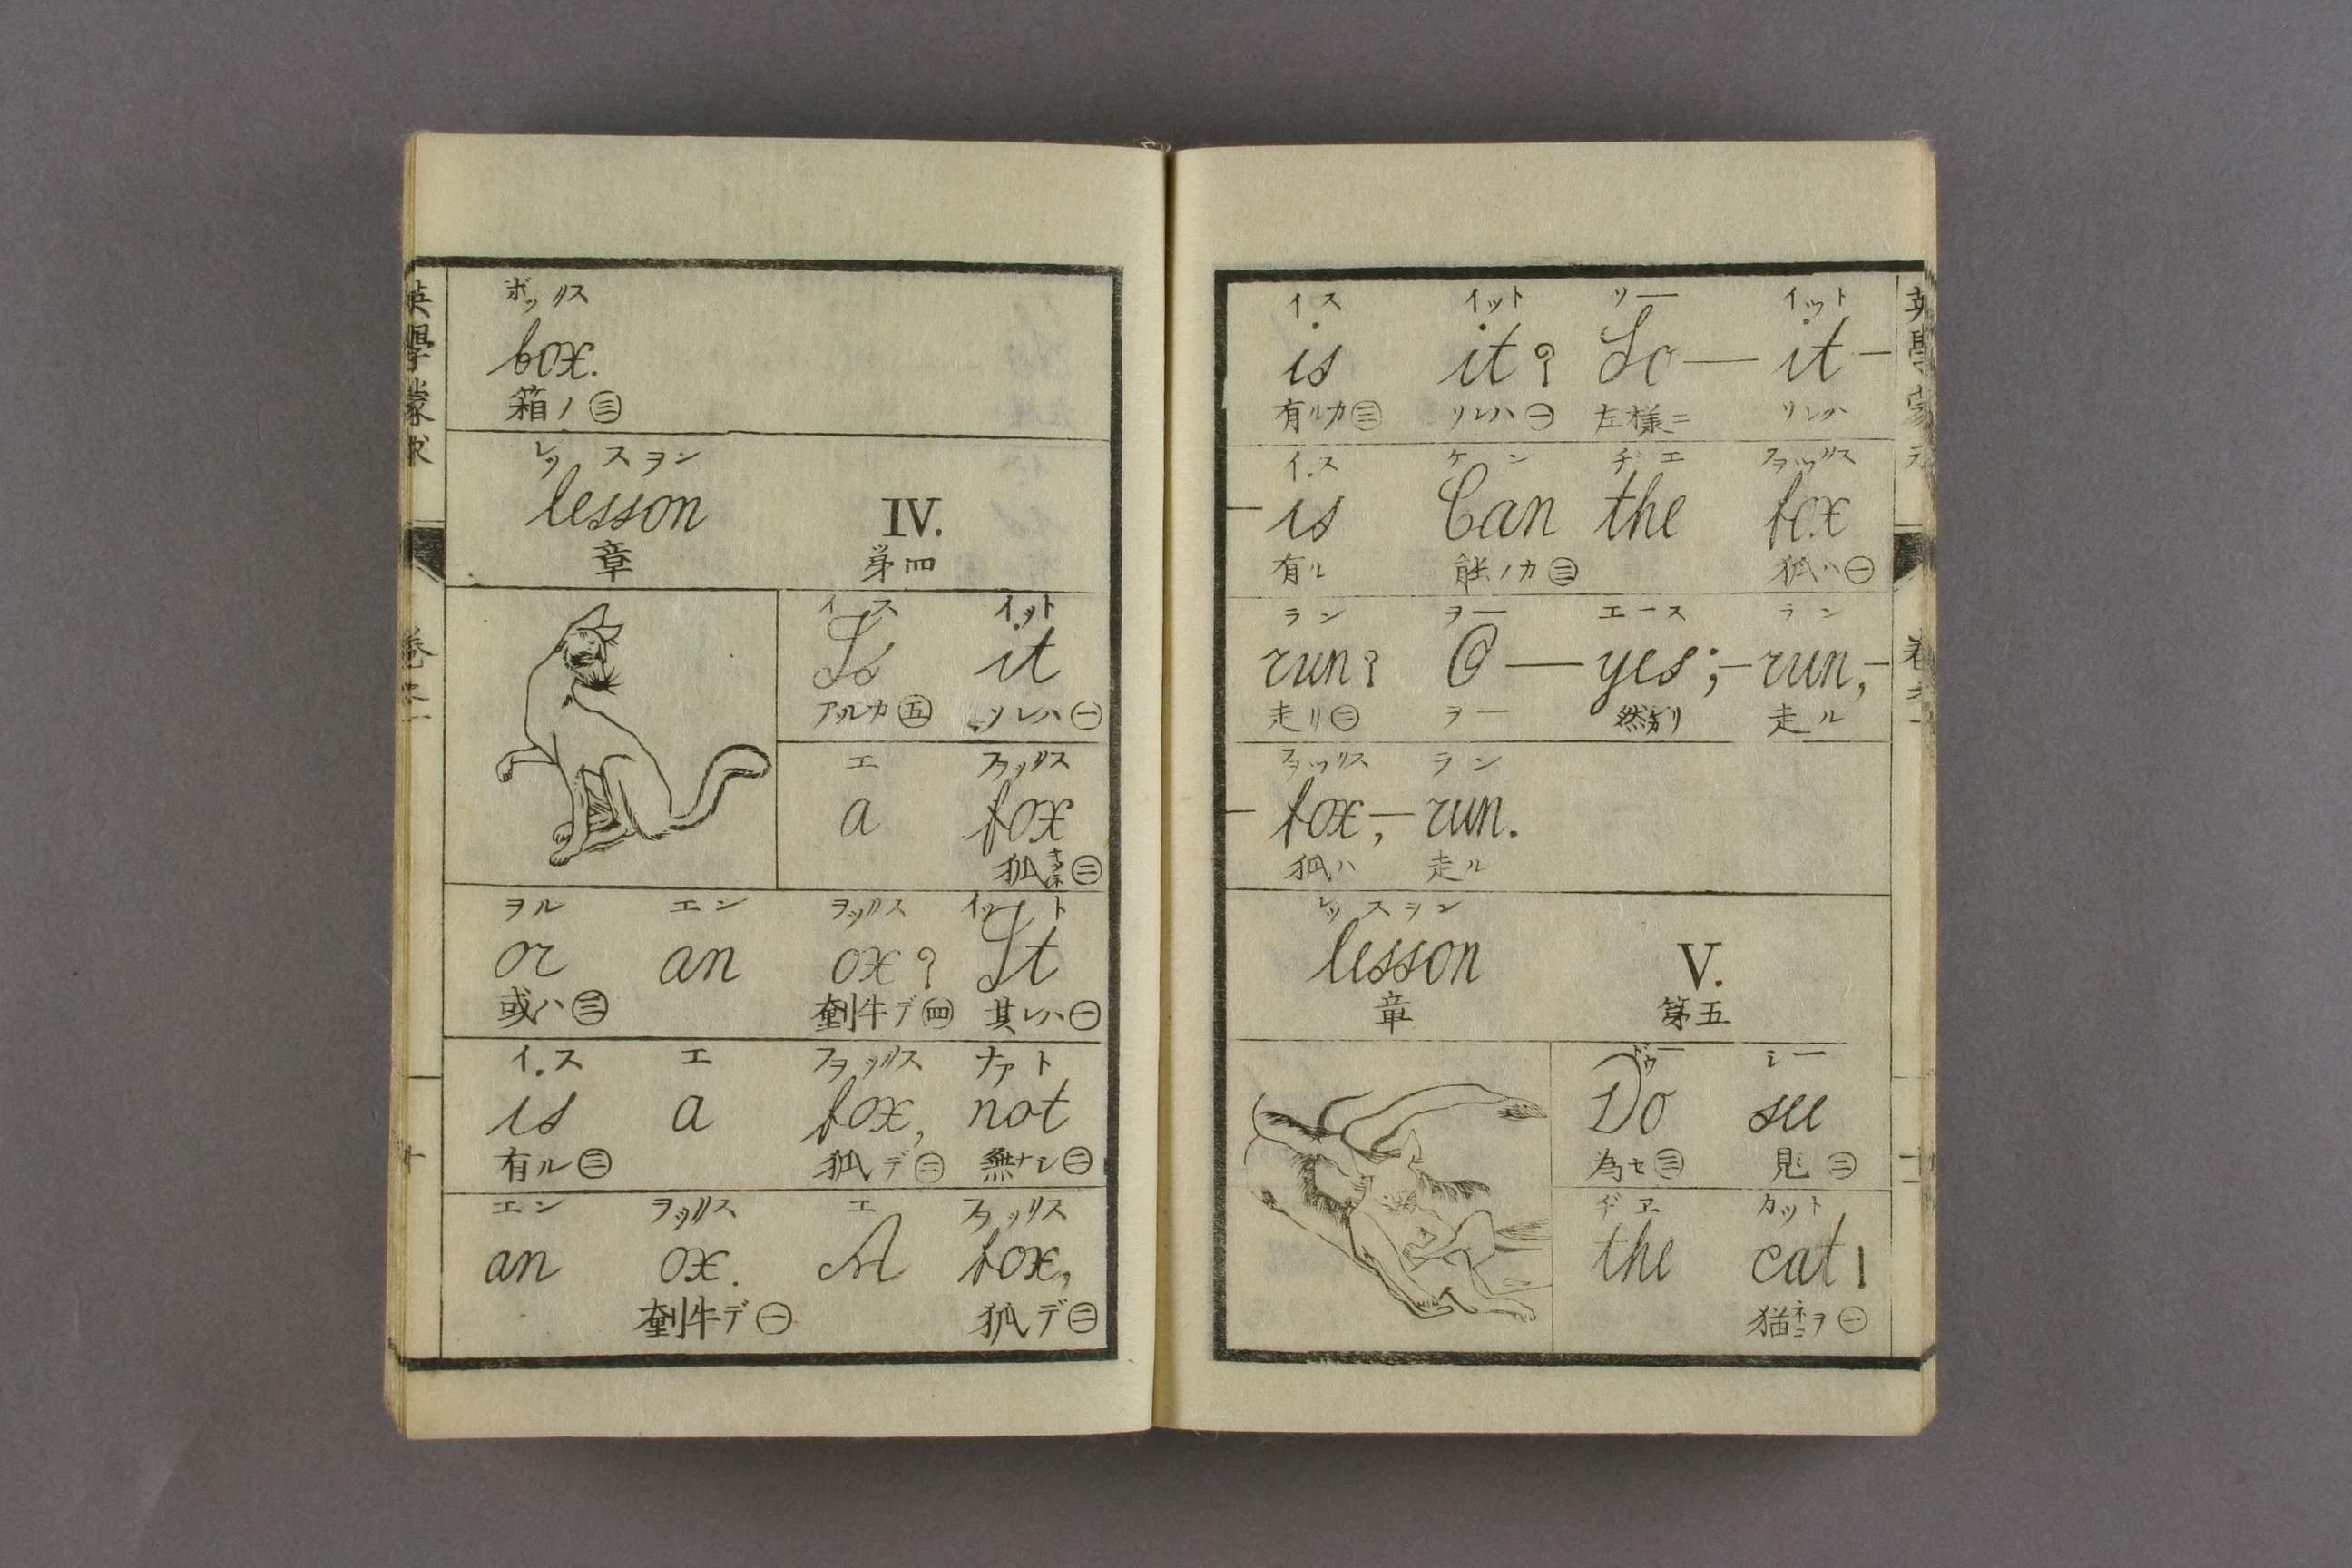 ボックス
box.
箱ノ㊂
レッスヲン
lesson IV.
章 第四
イス イット
Is it
アルカ㊄ ソレハ㊀
エ フヲックス
a fox
狐 キツネ㊁
ヲル エン ヲックス イット
or an ox? It
或ハ㊂ 牛デ㊃ 其レハ㊀
イス エ フヲックス ナアト
is a fox, not
有ル㊂ 狐デ㊁ 無ナシ㊁
エン ヲックス エ フヲックス
an ox. A fox,
牛デ㊀ 狐デ㊁
英學蒙求
巻之二
十
イス イット ソー イット
is it? So — it —
有ルカ㊂ ソレハ㊀ 左様ニ ソレハ
イス ケン ヂエ フヲックス
— is Can the fox
有ル 能ノカ㊂ 狐ハ㊀
ラン ヲー エース ラン
run? O — yes; — run, —
走リ㊁ ヲー 然り 走ル
フヲックス ラン
— fox, — run.
狐ハ 走ル
レッスヲン
lesson V.
章 第五
ドウー シー
Do see
為セ㊂ 見㊁
ヂエ カット
the cat!
猫 ネコヲ㊀